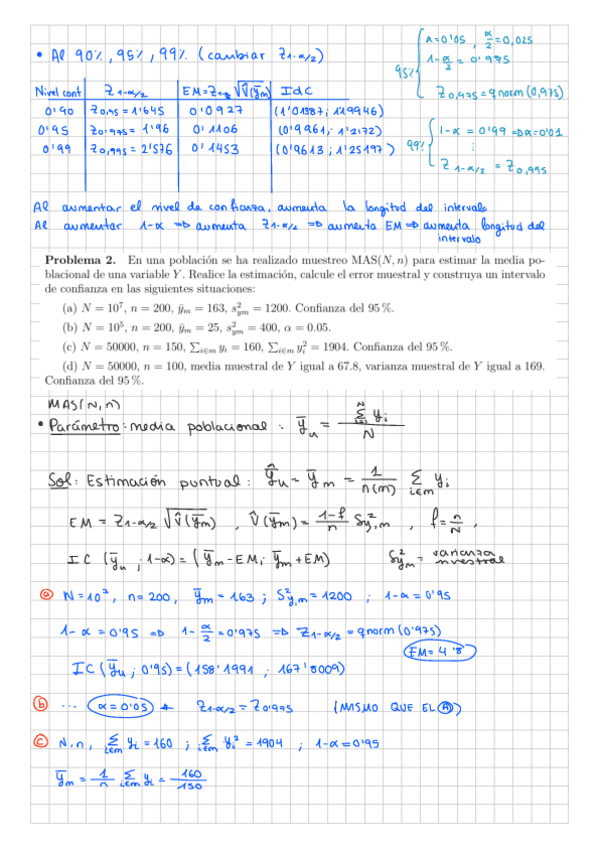 • Al 90%, 95%, 99% (cambiar Z1-α/2)
95% { α=0'05, α/2=0,025
1-α/2 = 0'975
Z0,975 = qnorm(0,975)
Nivel conf | Z1-α/2 | EM=Z1-α/2 √V̂(ȳm) | IdC
0'90 | Z0,95 = 1'645 | 0'0927 | (1'01387; 1'19946)
0'95 | Z0'975 = 1'96 | 0'1106 | (0'9961; 1'2172)
0'99 | Z0,995 = 2'576 | 0'1453 | (0'9613; 1'25197)
99% { 1-α = 0'99 ⇒ α=0'01
⋮
Z1-α/2 = Z0,995
Al aumentar el nivel de confianza, aumenta la longitud del intervalo
Al aumentar 1-α ⇒ aumenta Z1-α/2 ⇒ aumenta EM ⇒ aumenta longitud del
intervalo
Problema 2. En una población se ha realizado muestreo MAS(N, n) para estimar la media po-
blacional de una variable Y. Realice la estimación, calcule el error muestral y construya un intervalo
de confianza en las siguientes situaciones:
(a) N = 10⁷, n = 200, ȳm = 163, s²ym = 1200. Confianza del 95 %.
(b) N = 10⁵, n = 200, ȳm = 25, s²ym = 400, α = 0.05.
(c) N = 50000, n = 150, ∑i∈m yi = 160, ∑i∈m yi² = 1904. Confianza del 95 %.
(d) N = 50000, n = 100, media muestral de Y igual a 67.8, varianza muestral de Y igual a 169.
Confianza del 95 %.
MAS(N,n)
• Parámetro: media poblacional: ȳu = ∑ᴺi=1 yi / N
Sol: Estimación puntual: ŷ̄u = ȳm = 1/n(m) ∑i∈m yi
EM = Z1-α/2 √V̂(ȳm), V̂(ȳm) = (1-f)/n S²y,m, f = n/N,
IC (ȳu; 1-α) = (ȳm - EM; ȳm + EM) S²ym = varianza
muestral
(a) N = 10⁷, n = 200, ȳm = 163; S²y,m = 1200; 1-α = 0'95
1-α = 0'95 ⇒ 1-α/2 = 0'975 ⇒ Z1-α/2 = qnorm(0'975)
EM = 4'8
IC (ȳu; 0'95) = (158'1991; 167'8009)
(b) ... α = 0'05 Z1-α/2 = Z0'975 (MISMO QUE EL (A))
(c) N, n, ∑i∈m yi = 160; ∑i∈m yi² = 1904; 1-α = 0'95
ȳm = 1/n ∑i∈m yi = 160/150